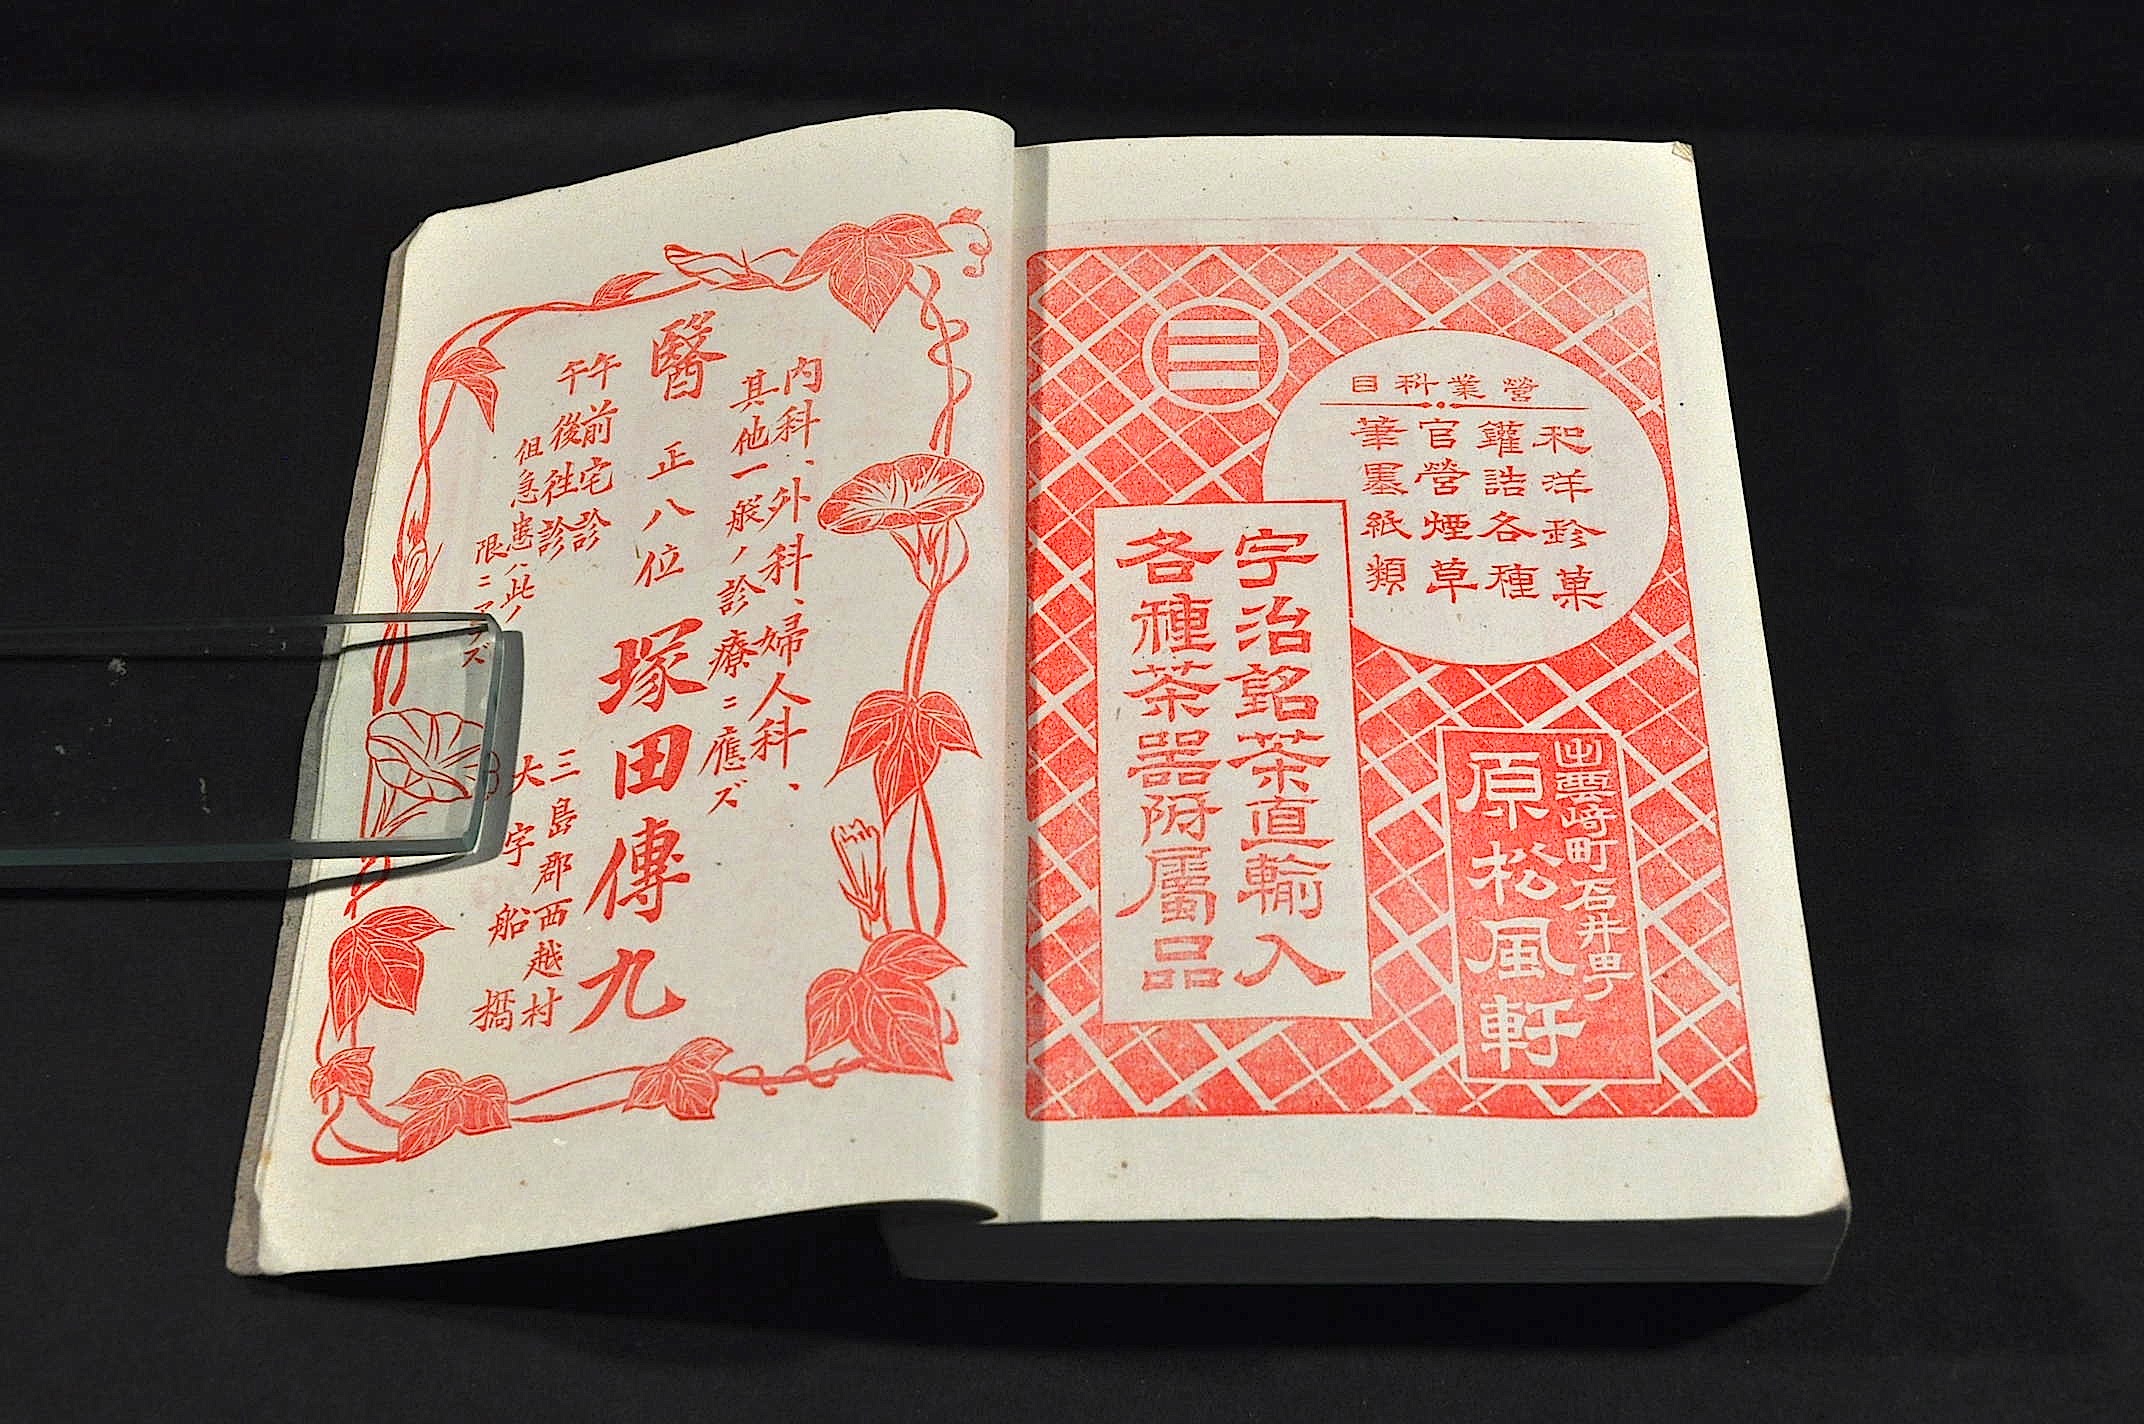 營業科目
和洋珍菓
鑵詰各種
官營煙草
筆墨紙類
宇治銘茶直輸入
各種茶器附屬品
出雲崎町石井町
原松風軒
内科、外科、婦人科、
其他一般ノ診療ニ應ズ
醫 正八位 塚田傳九
午前宅診
午後往診
但急患ハ此ノ
限ニアラズ
三島郡西越村
大字船橋